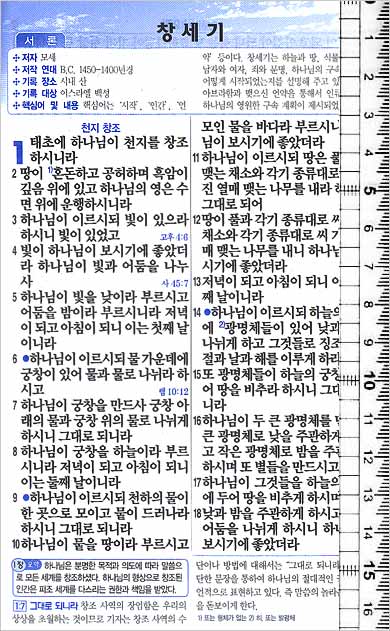 창세기
서 론
✣ 저자 모세
✣ 저작 연대 B.C. 1450-1400년경
✣ 기록 장소 시내 산
✣ 기록 대상 이스라엘 백성
✣ 핵심어 및 내용 핵심어는 '시작', '인간', '언
약' 등이다. 창세기는 하늘과 땅, 식물
남자와 여자, 죄와 문명, 하나님의 구속
어떻게 시작되었는지를 설명해 주고 있
아브라함과 맺으신 언약을 통해서 인류
하나님의 영원한 구속 계획이 제시되었
천지 창조
1 태초에 하나님이 천지를 창조
하시니라
2 땅이 1)혼돈하고 공허하며 흑암이
깊음 위에 있고 하나님의 영은 수
면 위에 운행하시니라
3 하나님이 이르시되 빛이 있으라
하시니 빛이 있었고 고후 4:6
4 빛이 하나님이 보시기에 좋았더
라 하나님이 빛과 어둠을 나누
사 사 45:7
5 하나님이 빛을 낮이라 부르시고
어둠을 밤이라 부르시니라 저녁
이 되고 아침이 되니 이는 첫째 날
이니라
6 ●하나님이 이르시되 물 가운데에
궁창이 있어 물과 물로 나뉘라 하
시고 렘 10:12
7 하나님이 궁창을 만드사 궁창 아
래의 물과 궁창 위의 물로 나뉘게
하시니 그대로 되니라
8 하나님이 궁창을 하늘이라 부르
시니라 저녁이 되고 아침이 되니
이는 둘째 날이니라
9 ●하나님이 이르시되 천하의 물이
한 곳으로 모이고 뭍이 드러나라
하시니 그대로 되니라
10 하나님이 뭍을 땅이라 부르시고
모인 물을 바다라 부르시니
님이 보시기에 좋았더라
11 하나님이 이르시되 땅은 풀
맺는 채소와 각기 종류대로
진 열매 맺는 나무를 내라 하
그대로 되어
12 땅이 풀과 각기 종류대로 씨
채소와 각기 종류대로 씨 가
매 맺는 나무를 내니 하나님
시기에 좋았더라
13 저녁이 되고 아침이 되니 이
째 날이니라
14 ●하나님이 이르시되 하늘의
에 2)광명체들이 있어 낮과
나뉘게 하고 그것들로 징조
절과 날과 해를 이루게 하라
15 또 광명체들이 하늘의 궁창
어 땅을 비추라 하시니 그대
니라
16 하나님이 두 큰 광명체를 만
큰 광명체로 낮을 주관하게
고 작은 광명체로 밤을 주관
하시며 또 별들을 만드시고
17 하나님이 그것들을 하늘의
에 두어 땅을 비추게 하시며
18 낮과 밤을 주관하게 하시고
어둠을 나뉘게 하시니 하나
보시기에 좋았더라
1장 요약 하나님은 분명한 목적과 의도에 따라 말씀으
로 모든 세계를 창조하셨다. 하나님의 형상으로 창조된
인간은 피조 세계를 다스리는 권한과 책임을 받았다.
1:7 그대로 되니라 창조 사역의 장엄함은 우리의
상상을 초월하는 것이므로 기자는 창조 사역의 수
단이나 방법에 대해서는 "그대로 되니라
단한 문장을 통하여 하나님의 절대적인
언적으로 표현하고 있다. 즉 말씀의 놀라
을 돋보이게 한다.
1) 또는 형체가 없는 2) 히, 또는 발광체
1
2
3
4
5
6
7
8
9
10
11
12
13
14
15
16